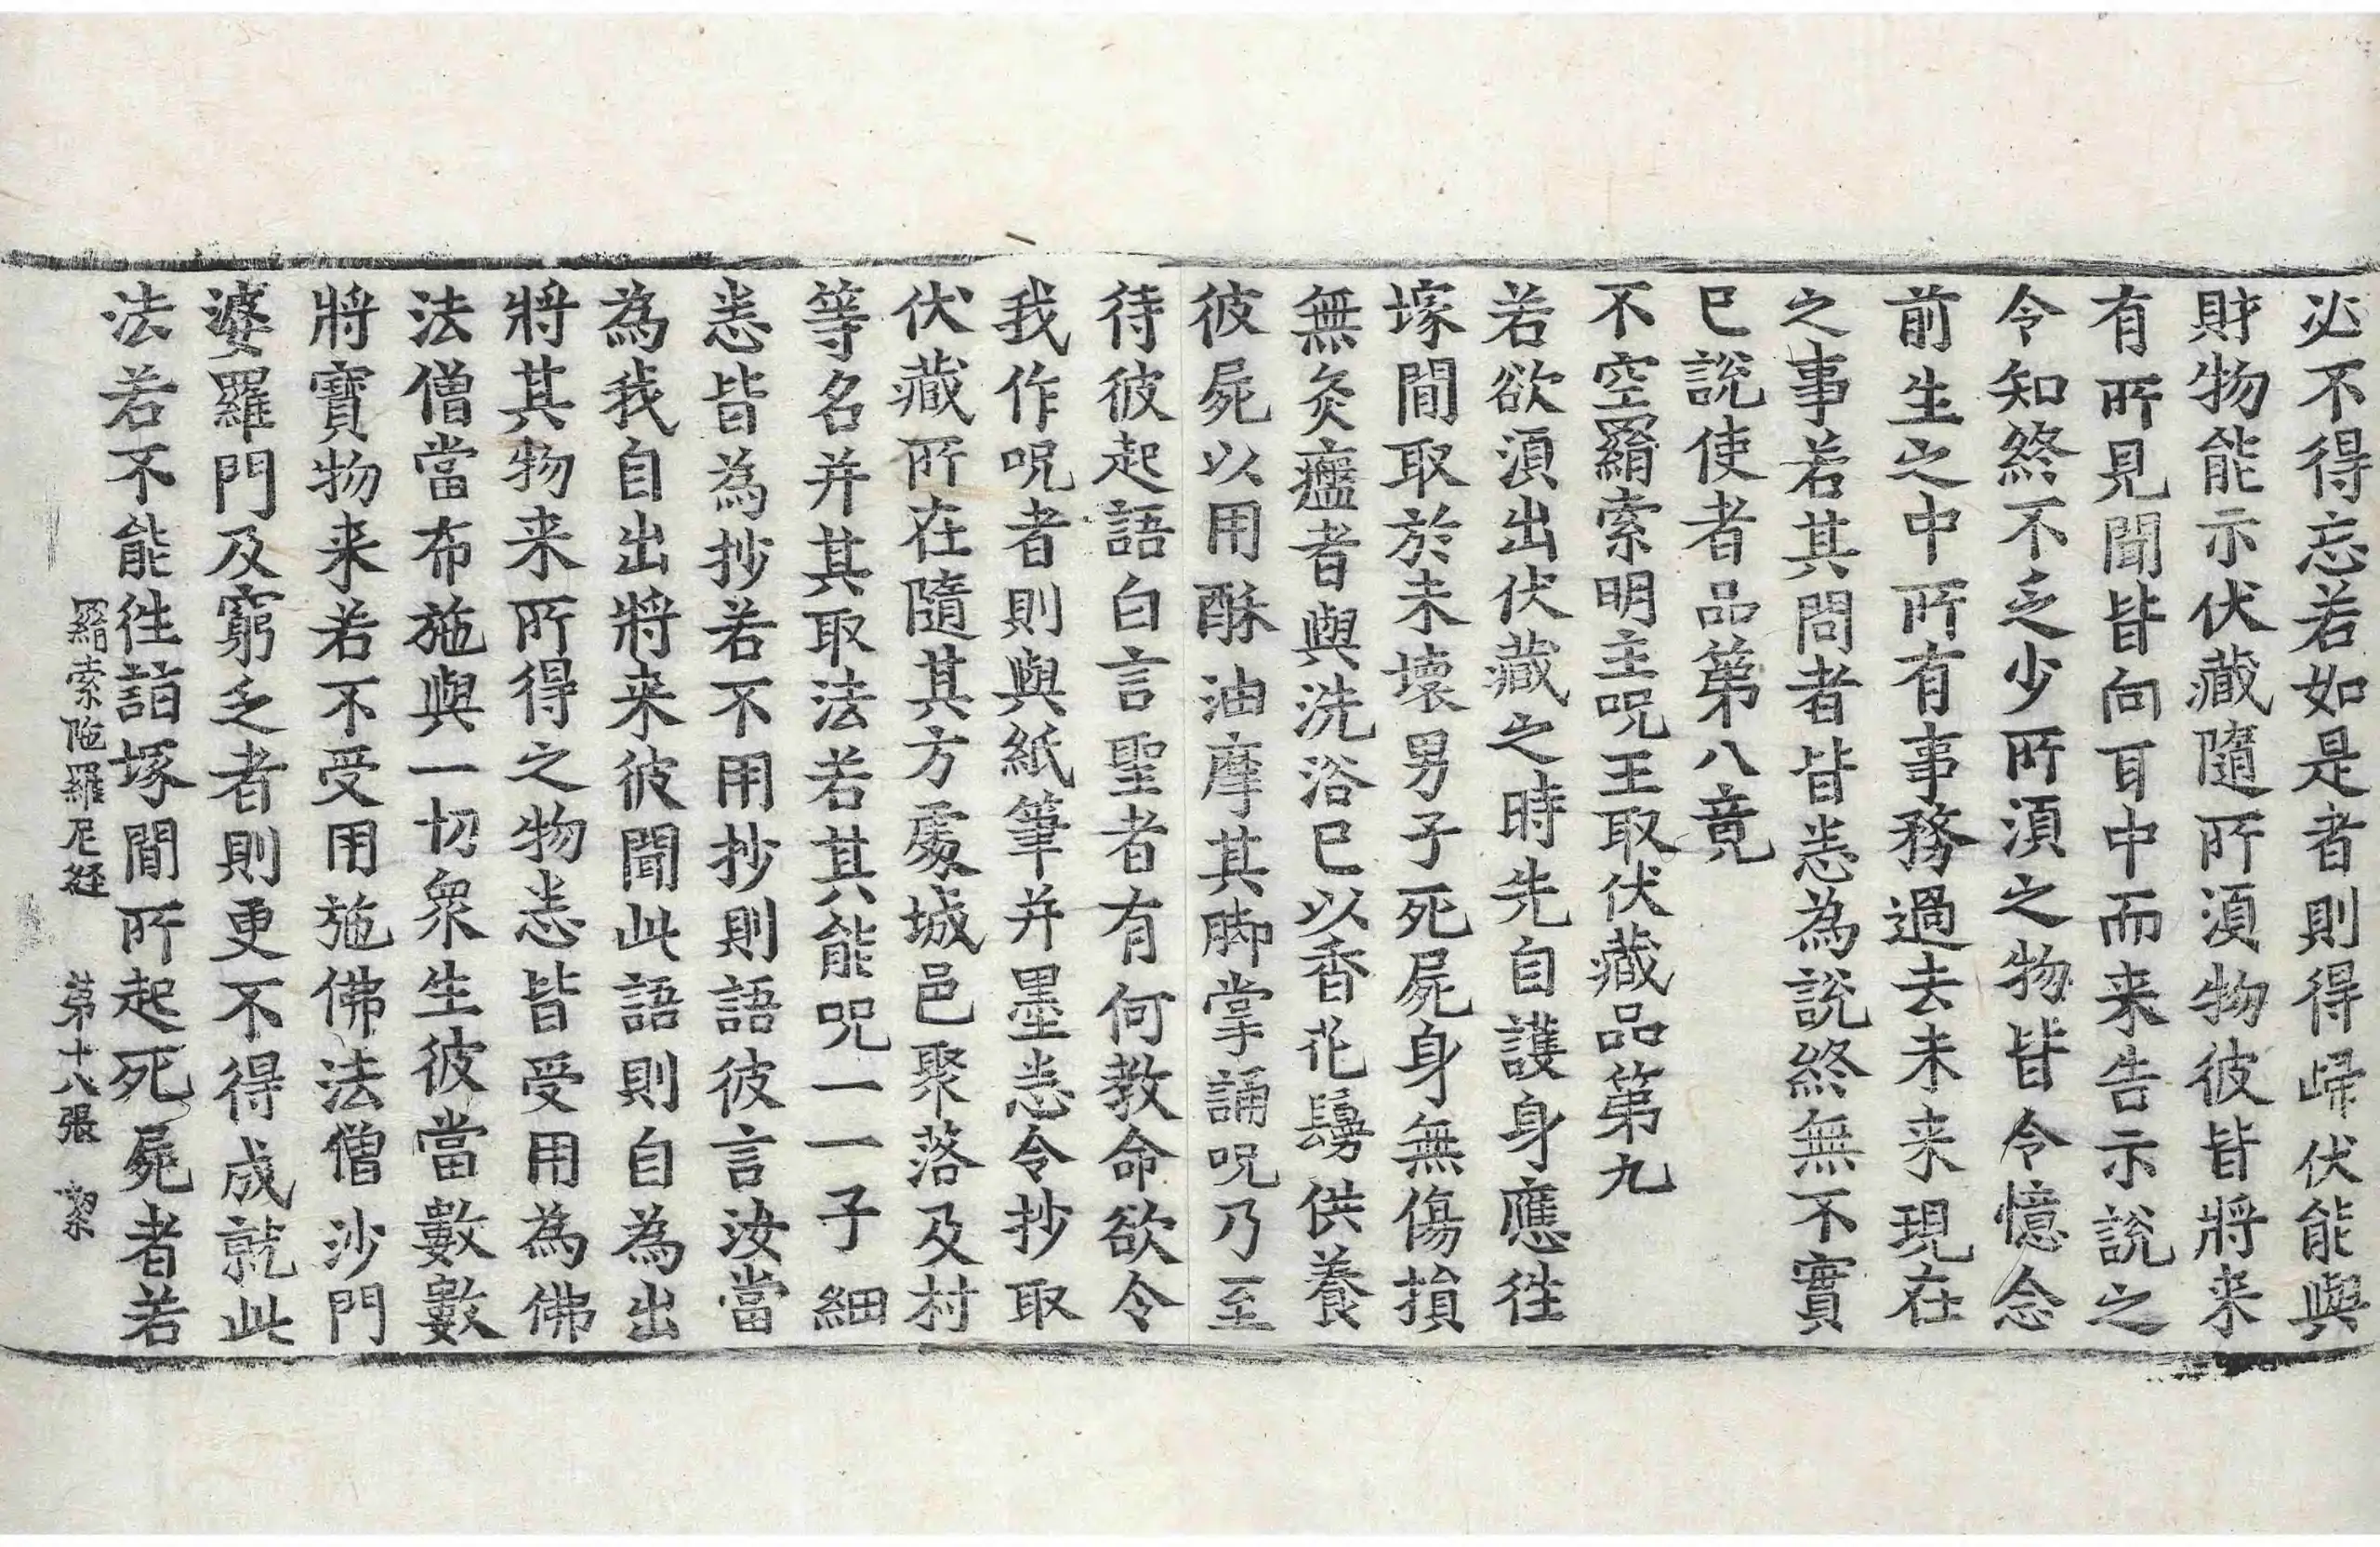 必不得忘若如是者則得歸伏能與
財物能示伏藏隨所須物彼皆將来
有所見聞皆向耳中而来告示說之
令知終不乏少所須之物皆令憶念
前生之中所有事務過去未来現在
之事若其問者皆悉為說終無不實
已說使者品第八竟
不空羂索明主呪王取伏藏品第九
若欲須出伏藏之時先自護身應往
塚間取於未壞男子死屍身無傷損
無灸瘡者與洗浴已以香花鬘供養
彼屍以用酥油摩其脚掌誦呪乃至
待彼起語白言聖者有何教命欲令
我作呪者則與紙筆并墨悉令抄取
伏藏所在隨其方處城邑聚落及村
等名并其取法若其能呪一一子細
悉皆為抄若不用抄則語彼言汝當
為我自出將来彼聞此語則自為出
將其物来所得之物悉皆受用為佛
法僧當布施與一切衆生彼當數數
將寶物来若不受用施佛法僧沙門
婆羅門及窮乏者則更不得成就此
法若不能往詣塚間所起死屍者若
羂索陁羅尼經 第十八張 絜